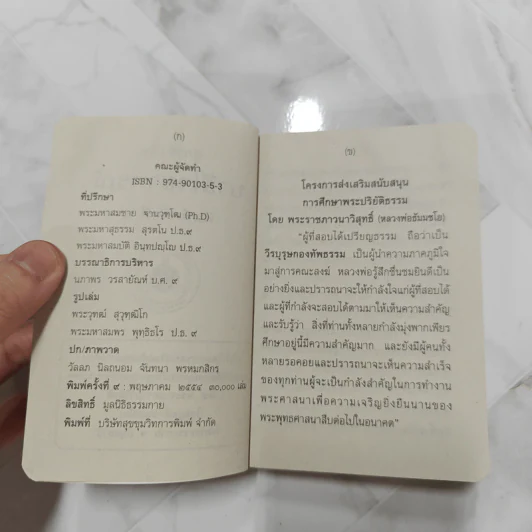 (ก)
คณะผู้จัดทำ
ISBN : 974-90103-5-3
ที่ปรึกษา
พระมหาสมชาย ฐานวุฑฺโฒ (Ph.D)
พระมหาสุธรรม สุรตโน ป.ธ.๙
พระมหาสมบัติ อินฺทปญฺโญ ป.ธ.๙
บรรณาธิการบริหาร
นภาพร วรสายัณห์ บ.ศ. ๙
รูปเล่ม
พระวุฑฒ์ สุวุฑฺฒิโก
พระมหาสมพร พุทฺธิธโร ป.ธ. ๙
ปก/ภาพวาด
วัลลภ นิลถนอม จันทนา พรหมกสิกร
พิมพ์ครั้งที่ ๙ : พฤษภาคม ๒๕๕๔ ๓๐,๐๐๐ เล่ม
ลิขสิทธิ์ มูลนิธิธรรมกาย
พิมพ์ที่ บริษัทสุขขุมวิทการพิมพ์ จำกัด
(ข)
โครงการส่งเสริมสนับสนุน
การศึกษาพระปริยัติธรรม
โดย พระราชภาวนาวิสุทธิ์ (หลวงพ่อธัมมชโย)
"ผู้ที่สอบได้เปรียญธรรม ถือว่าเป็น
วีรบุรุษกองทัพธรรม เป็นผู้นำความภาคภูมิใจ
มาสู่การคณะสงฆ์ หลวงพ่อรู้สึกชื่นชมยินดีเป็น
อย่างยิ่งและปรารถนาจะให้กำลังใจแก่ผู้ที่สอบได้
และผู้ที่กำลังจะสอบได้ตามมาให้เห็นความสำคัญ
และรับรู้ว่า สิ่งที่ท่านทั้งหลายกำลังมุ่งพากเพียร
ศึกษาอยู่นี้มีความสำคัญมาก และยังมีผู้คนทั้ง
หลายรอคอยและปรารถนาจะเห็นความสำเร็จ
ของทุกท่านผู้จะเป็นกำลังสำคัญในการทำงาน
พระศาสนาเพื่อความเจริญยั่งยืนนานของ
พระพุทธศาสนาสืบต่อไปในอนาคต"